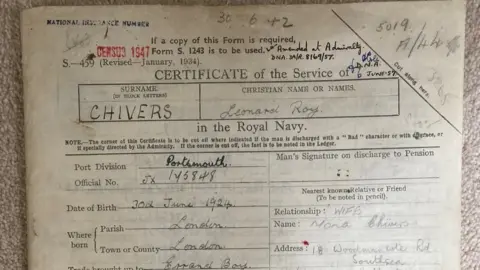 NATIONAL INSURANCE NUMBER
30 6 42
5019.
If a copy of this Form is required,
CENSUS 1947 Form S. 1243 is to be used. Amended at Admiralty
S.—459 (Revised—January, 1934).
JUNE 57.
CERTIFICATE of the Service of
Cut along here.
SURNAME
(IN BLOCK LETTERS)
CHRISTIAN NAME OR NAMES.
CHIVERS
Leonard Roy.
in the Royal Navy.
NOTE.—The corner of this Certificate is to be cut off where indicated if the man is discharged with a "Bad" character or with disgrace, or
if specially directed by the Admiralty. If the corner is cut off, the fact is to be noted in the Ledger.
Port Division Portsmouth
Official No. JX 145848
Man's Signature on discharge to Pension
Nearest known Relative or Friend
(To be noted in pencil).
Date of Birth 30th June 1924
Relationship: WIFE
Where born
Parish London
Name: Chivers
Town or County London
Address: 18 Rd
Southsea
Trade brought up to Errand Boy